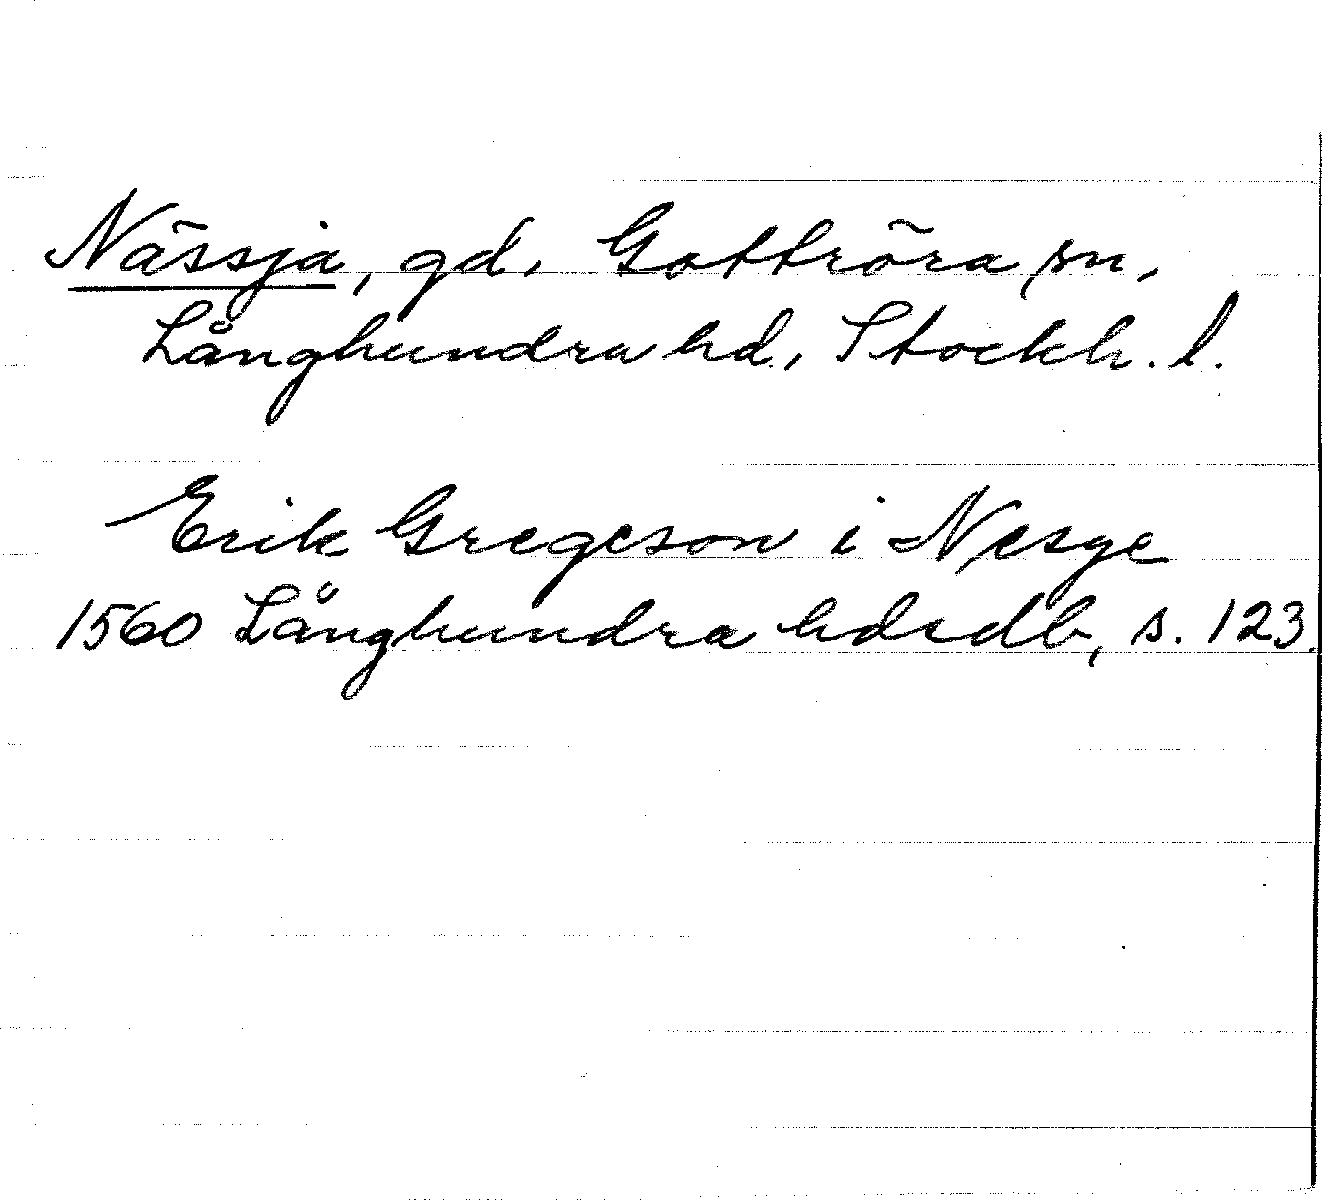 Nässja, gd, Gottröra sn,
Långhundra hd, Stockh. l.
Erik Gregeson i Nesge
1560 Långhundra hdsdb, s. 123.